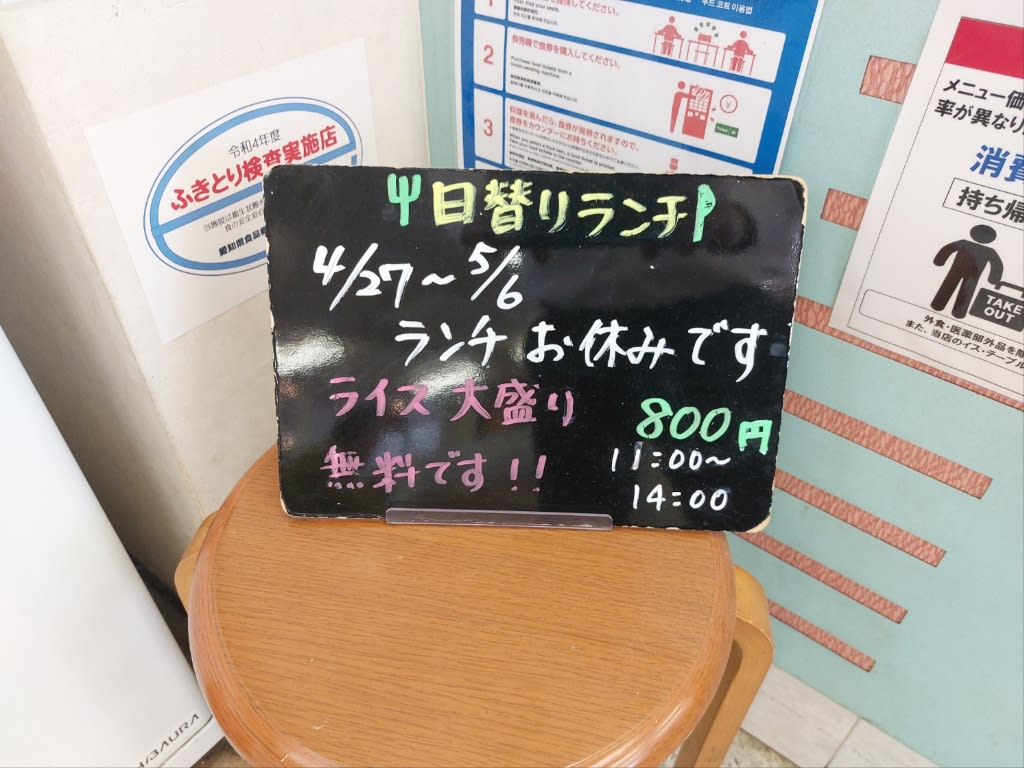 日替りランチ
4/27～5/6
ランチお休みです
ライス大盛り
無料です!!
800円
11:00～
14:00
令和4年度
ふきとり検査実施店
2
券売機で食券を購入してください。
Purchase food tickets from a
ticket-vending machine.
3
料理を選んだら、食券が発券されますので、
食券をカウンターにお持ちください。
メニュー価
率が異なり
消費
持ち帰
TAKE
OUT
外食・医薬部外品を除
また、当店のイス・テーブル